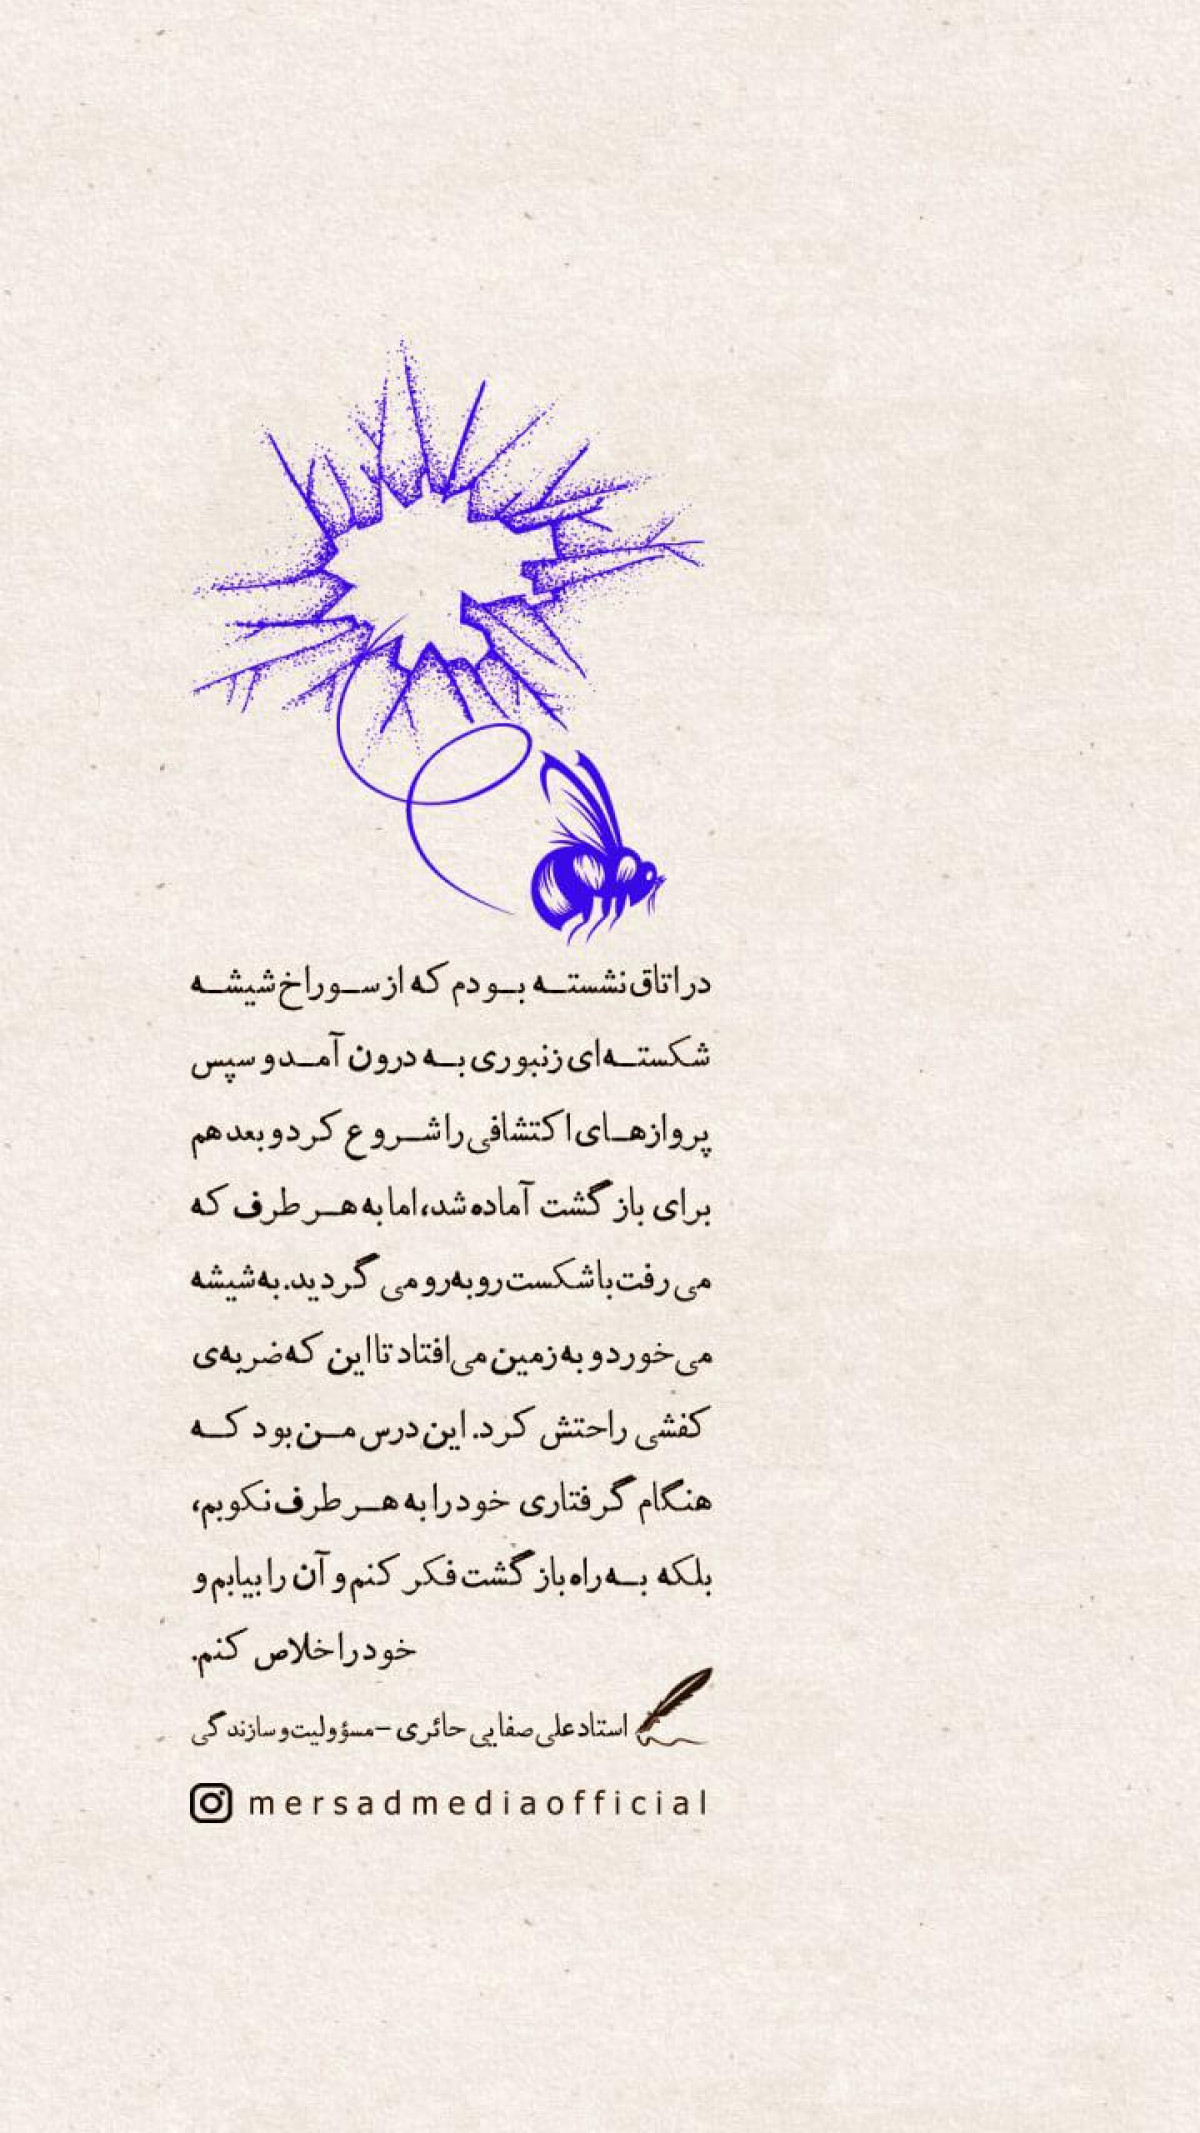 در اتاق نشسته بودم که از سوراخ شیشه
شکسته‌ای زنبوری به درون آمد و سپس
پروازهای اکتشافی را شروع کرد و بعد هم
برای بازگشت آماده شد، اما به هر طرف که
می‌رفت با شکست روبه‌رو می‌گردید. به شیشه
می‌خورد و به زمین می‌افتاد تا این که ضربه‌ی
کفشی راحتش کرد. این درس من بود که
هنگام گرفتاری خود را به هر طرف نکوبم،
بلکه به راه بازگشت فکر کنم و آن را بیابم و
خود را خلاص کنم.
استاد علی صفایی حائری - مسؤولیت و سازندگی
mersadmediaofficial